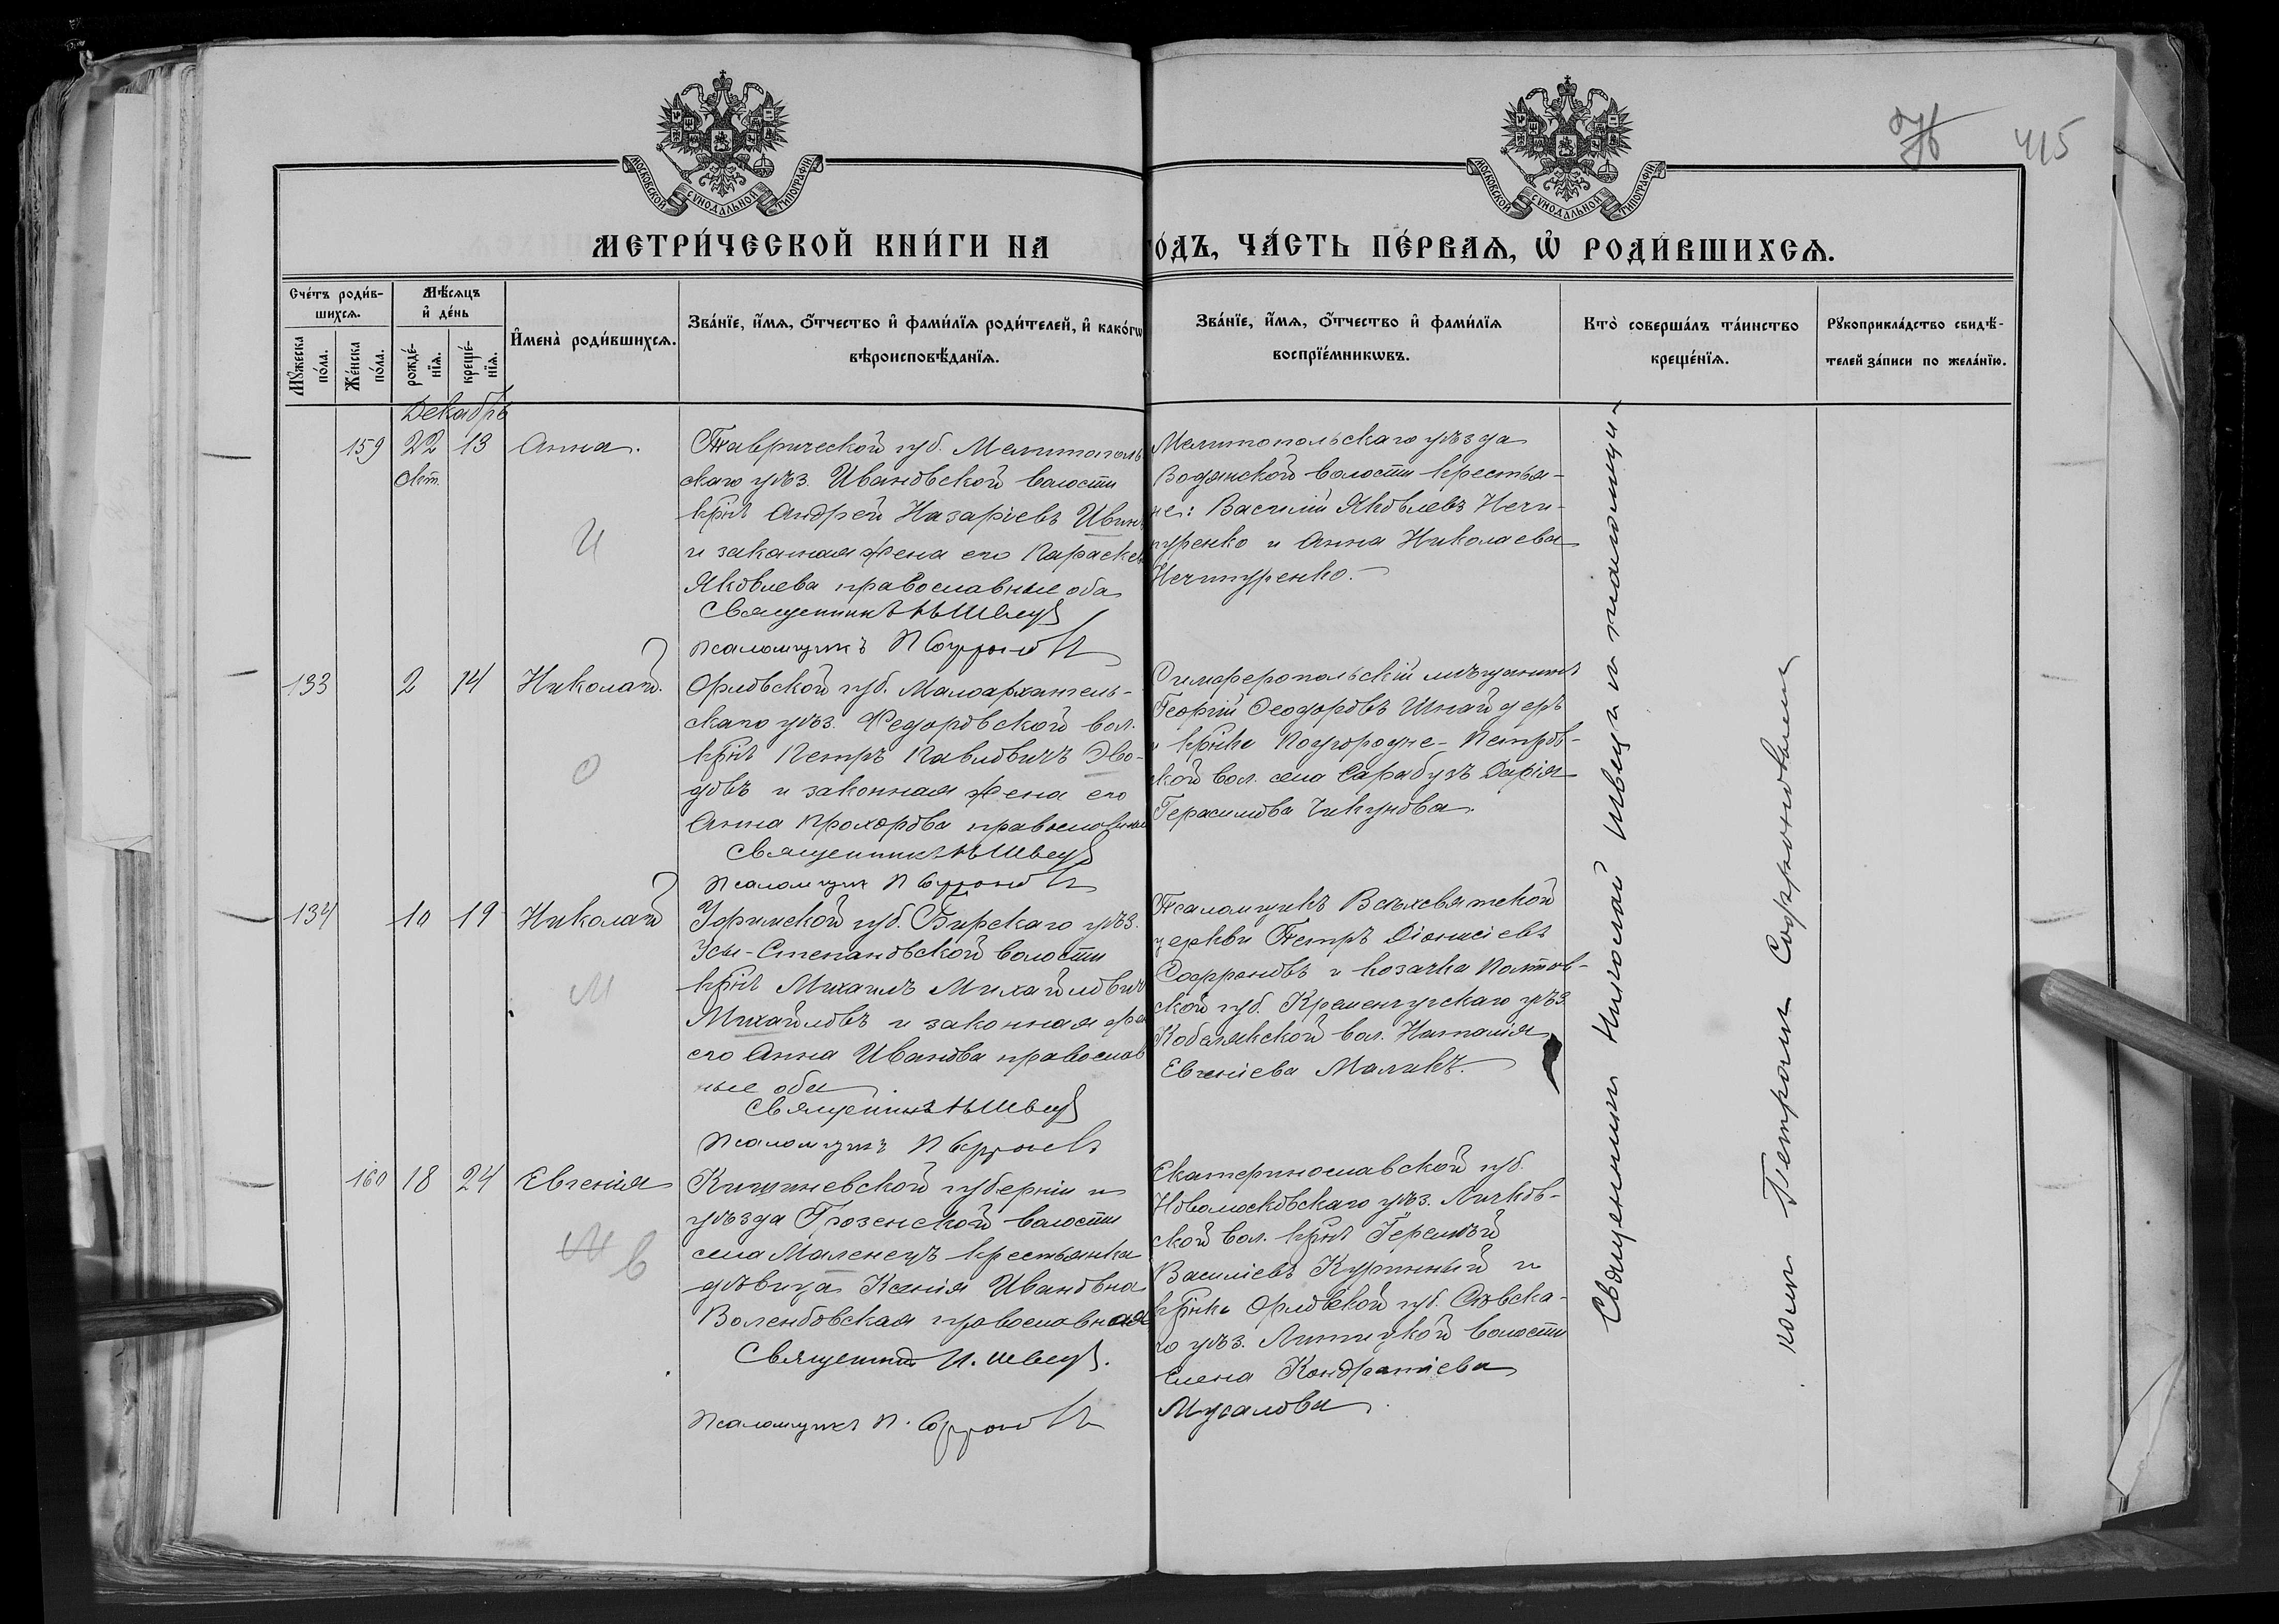 415
МОСКОВСКОЙ СѴНОДАЛЬНОЙ ТИПОГРАФІИ
МОСКОВСКОЙ СѴНОДАЛЬНОЙ ТИПОГРАФІИ
МЕТРИ́ЧЕСКОЙ КНИ́ГИ НА
О́ДЪ, ЧА́СТЬ ПЕ́РВАѦ, Ѿ РОДИ́ВШИХСѦ.
Сче́тъ роди́в-
шихсѧ.
Мꙋ́жеска по́ла.
Же́нска по́ла.
Мѣ́сѧцъ
и҆ де́нь
рожде́-
нїѧ.
креще́-
нїѧ.
И҆мена̀ роди́вшихсѧ.
Зва́нїе, и҆́мѧ, ѻ҆́тчество и҆ фами́лїѧ роди́телей, и҆ како́гѡ
вѣроисповѣ́данїѧ.
Зва́нїе, и҆́мѧ, ѻ҆́тчество и҆ фами́лїѧ
воспрїе́мникѡвъ.
Кто̀ соверша́лъ та́инство
креще́нїѧ.
Рꙋкоприкла́дство свидѣ́-
телей за́писи по жела́нїю.
Декабрь
159 22 13 Анна.
Окт.
И
Таврической губ. Мелитополь
скаго уѣз. Ивановской волости
крнъ Андрей Назаріевъ Ивин
и законная жена его Параскев
Яковлева православные оба
Священникъ Н Швецъ
Псаломщикъ П Софроновъ
Мелитопольскаго уѣзда
Водянской волости крестья-
не: Василій Яковлевъ Нечи-
пуренко и Анна Николаева
Нечипуренко.
133 2 14 Николай.
О
Орловской губ. Малоархангель-
скаго уѣз. Федоровской вол.
крнъ Петръ Павловичъ
и законная жена его
Анна Прохорова православные
Священникъ Н Швецъ
Псаломщик П Софроновъ
Симферопольскій мѣщанинъ
Георгій Феодоровъ Шнайдеръ
и крнка Подгородне-Петров-
ской вол. села Сарабузъ Дарія
Герасимова Чикунова.
134 10 19 Николай
М
Уфимской губ. Бирскаго уѣз.
Усы-Степановской волости
крнъ Михаилъ Михайловичъ
Михайловъ и законная же
его Анна Иванова православ
ные оба
Священникъ Н Швецъ
Псаломщикъ П Софроновъ
Псаломщикъ Всѣхсвятской
церкви Петръ Діонисіевъ
Софроновъ и козачка Полтав-
ской губ. Кременчугскаго уѣз.
Кобелякской вол. Наталія
Евгеніева Маликъ.
160 18 24 Евгенія
В
Кишиневской губерніи и
уѣзда волости
села крестьянка
дѣвица Ксенія Ивановна
православная
Священник Н. Швецъ.
Псаломщикъ П. Софроновъ
Екатеринославской губ.
Новомосковскаго уѣз. Личков-
ской вол. крнъ Геремѣй
Василіевъ Куринный и
крнка Орловской губ. Сѣвска-
го уѣз. волости
Елена Кондратіева
Мусалова.
Священникъ Николай Швецъ и псаломщи-
комъ Петромъ Софроновымъ